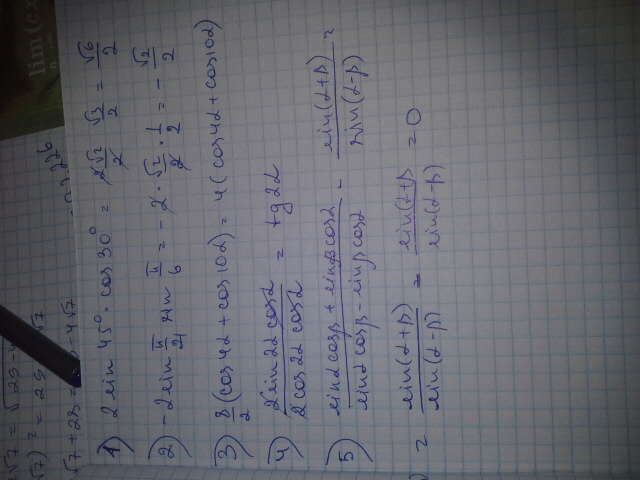 √7 = √29-4
√7)² = 29 √7
√7 + 29 = -4√7
lim (cx
1) 2 sin 45° · cos 30° = 2√2/2 √3/2 = √6/2
2) -2 sin π/4 sin π/6 = -2 · √2/2 · 1/2 = -√2/2
3) 8/2 (cos 4α + cos 10α) = 4 (cos 4α + cos 10α)
4) 2 sin 2α cos α / 2 cos 2α cos α = tg 2α
5) sin α cos β + sin β cos α / sin α cos β - sin β cos α - sin(α+β) / sin(α-β) =
= sin(α+β) / sin(α-β) - sin(α+β / sin(α-β) = 0